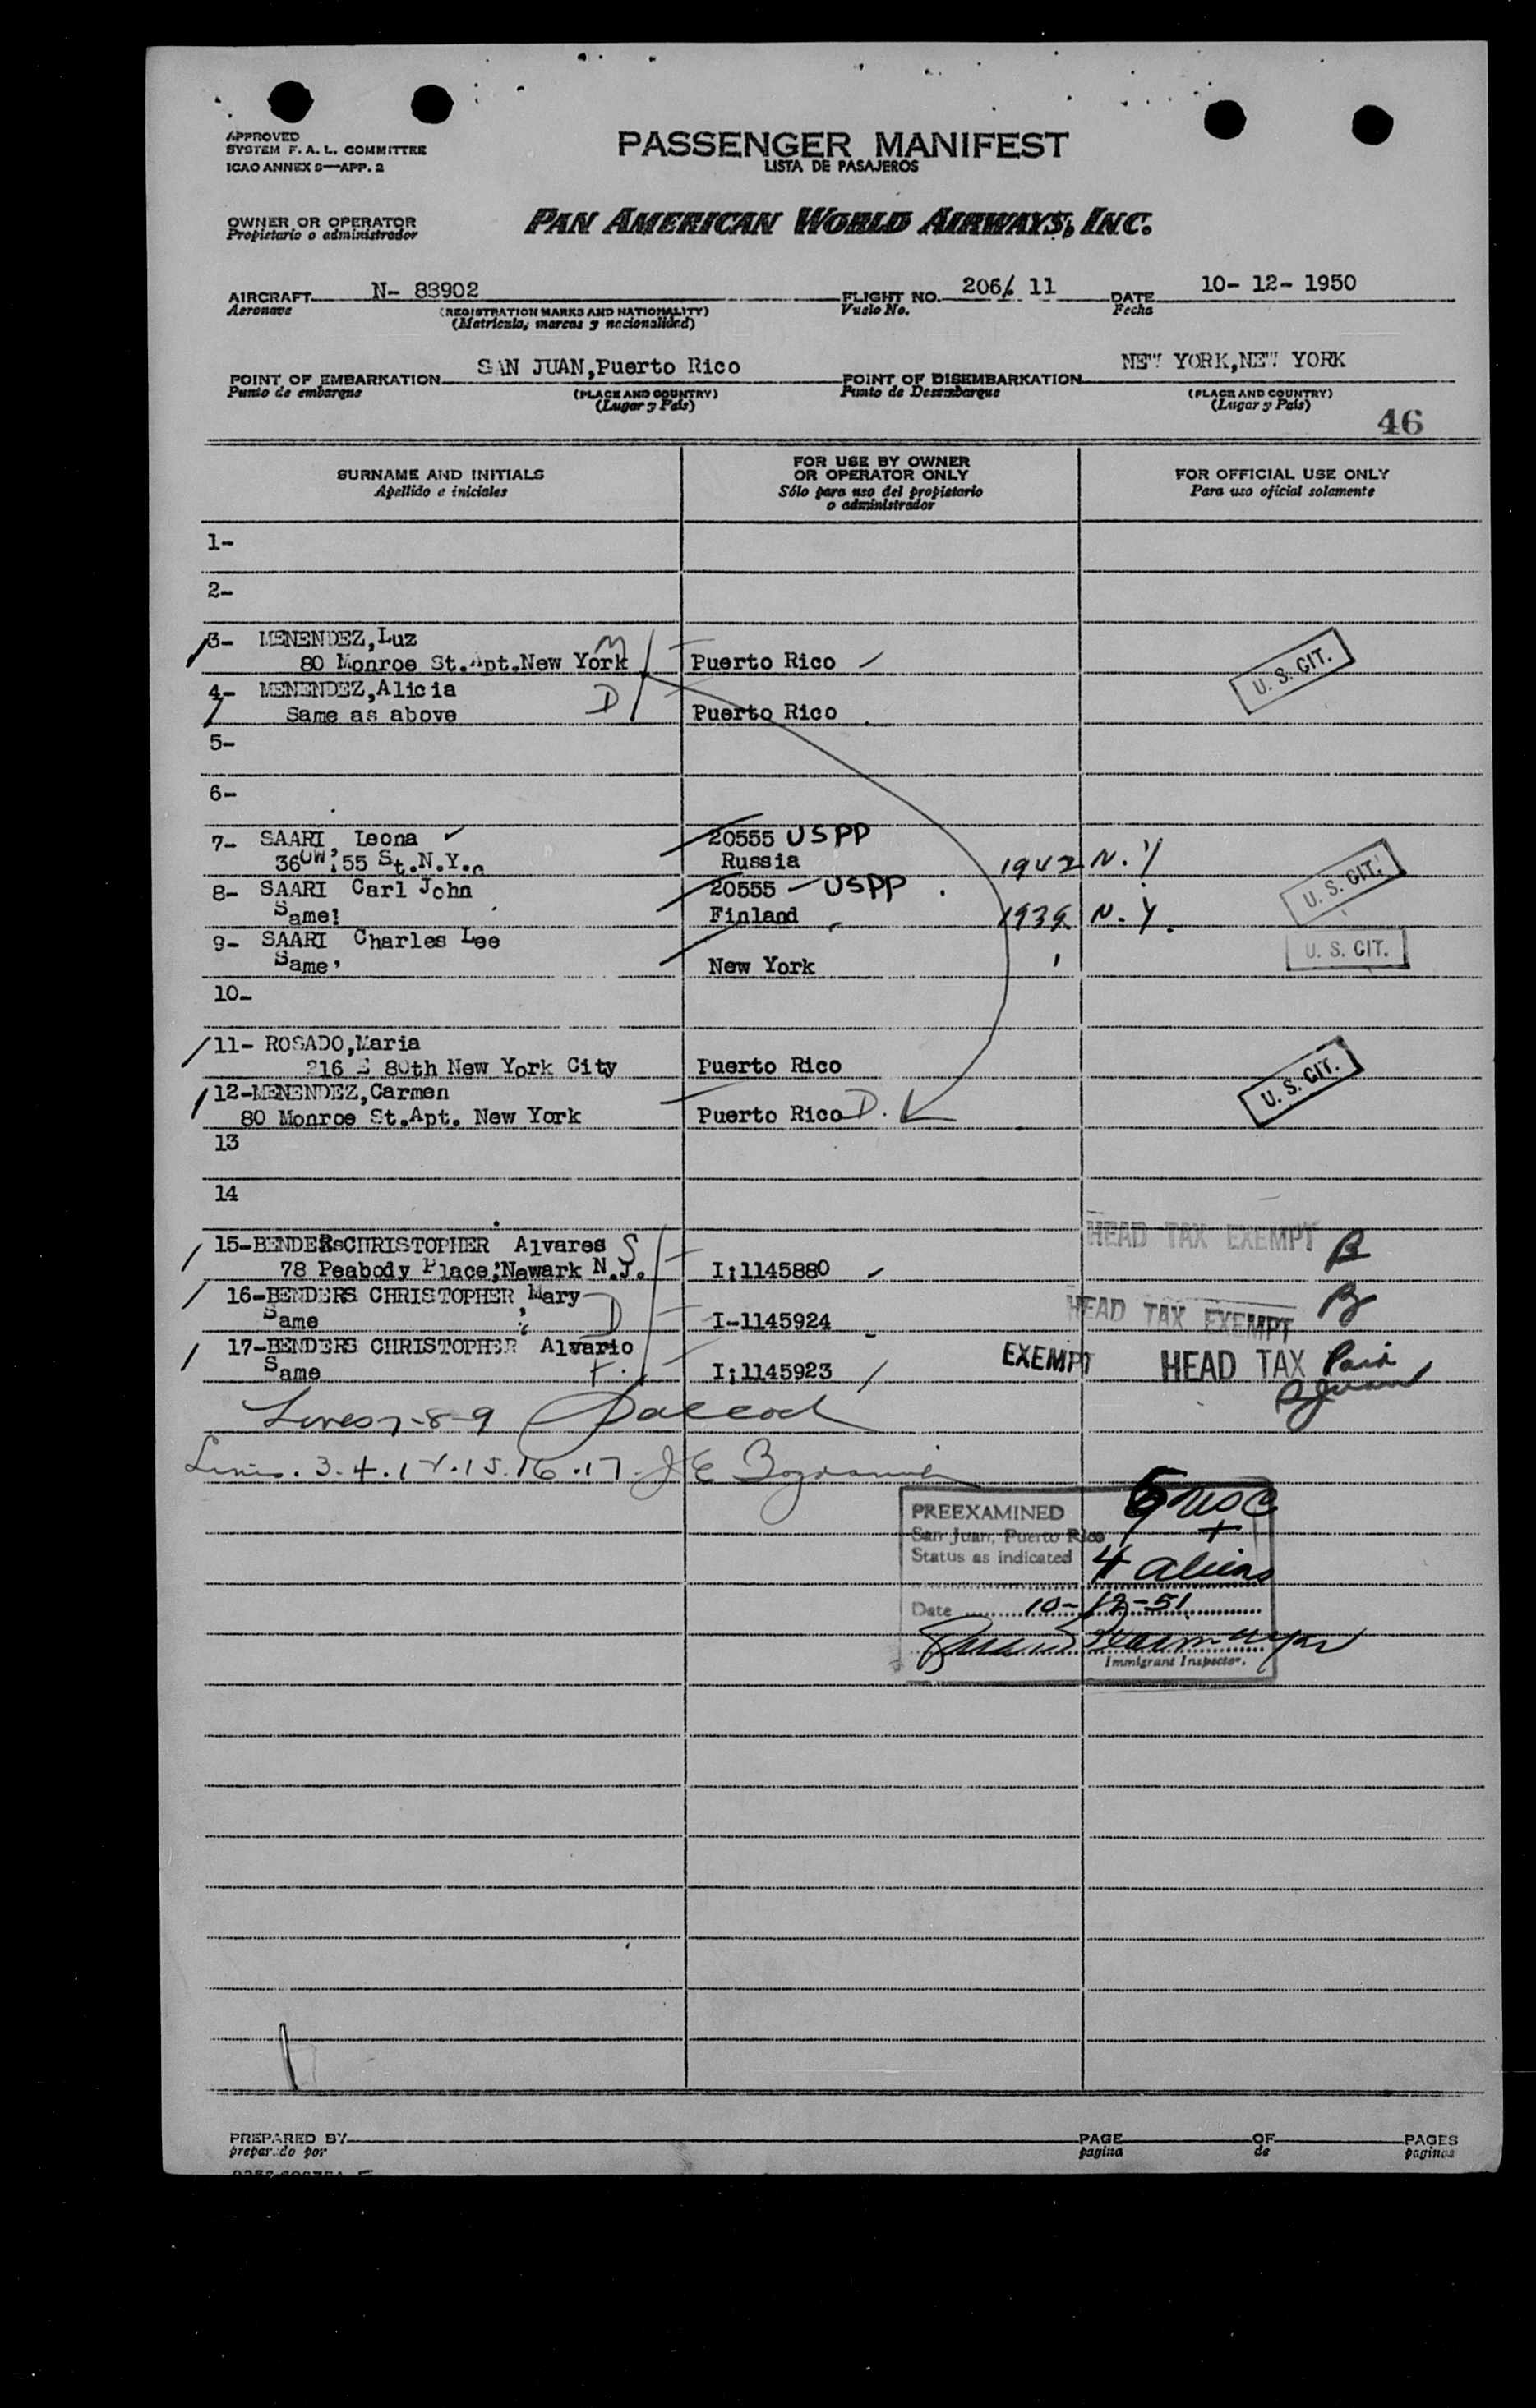 APPROVED
SYSTEM F. A. L. COMMITTEE
ICAO ANNEX 9—APP. 2
PASSENGER MANIFEST
LISTA DE PASAJEROS
OWNER OR OPERATOR
Propietario o administrador
PAN AMERICAN WORLD AIRWAYS, INC.
AIRCRAFT N- 88902 FLIGHT NO. 206/ 11 DATE 10- 12- 1950
Aeronave (REGISTRATION MARKS AND NATIONALITY) Vuelo No. Fecha
(Matrícula, marcas y nacionalidad)
POINT OF EMBARKATION SAN JUAN,Puerto Rico POINT OF DISEMBARKATION NEW YORK,NEW YORK
Punto de embarque (PLACE AND COUNTRY) Punto de Desembarque (PLACE AND COUNTRY)
(Lugar y País) (Lugar y País)
46
SURNAME AND INITIALS FOR USE BY OWNER OR OPERATOR ONLY FOR OFFICIAL USE ONLY
Apellido e iniciales Sólo para uso del propietario o administrador Para uso oficial solamente
1-
2-
3- MENENDEZ,Luz M
80 Monroe St.Apt.New York Puerto Rico U. S. CIT.
4- MENENDEZ,Alicia D
Same as above Puerto Rico
5-
6-
7- SAARI, Leona 20555 USPP
360W:55 St.N.Y. Russia 1942 N. Y
8- SAARI Carl John 20555 - USPP U. S. CIT.
Same! Finland 1939 N. Y.
9- SAARI Charles Lee
Same' New York U. S. CIT.
10-
11- ROSADO,Maria
216 E 80th New York City Puerto Rico U. S. CIT.
12-MENENDEZ,Carmen
80 Monroe St.Apt. New York Puerto Rico D.
13
14
15-BENDERsCHRISTOPHER Alvares S HEAD TAX EXEMPT
78 Peabody Place;Newark N.J. I;1145880
16-BENDERS CHRISTOPHER Mary D
Same I-1145924 HEAD TAX EXEMPT
17-BENDERS CHRISTOPHER Alvario
Same F. I;1145923 EXEMPT HEAD TAX Paid
S Juan
Lines 7-8-9
Lines. 3.4.12.15.16.17 J E
PREEXAMINED 6 USC
San Juan, Puerto Rico +
Status as indicated 4 aliens
Date 10-12-51
Immigrant Inspector.
PREPARED BY PAGE OF PAGES
preparado por pagina de paginas